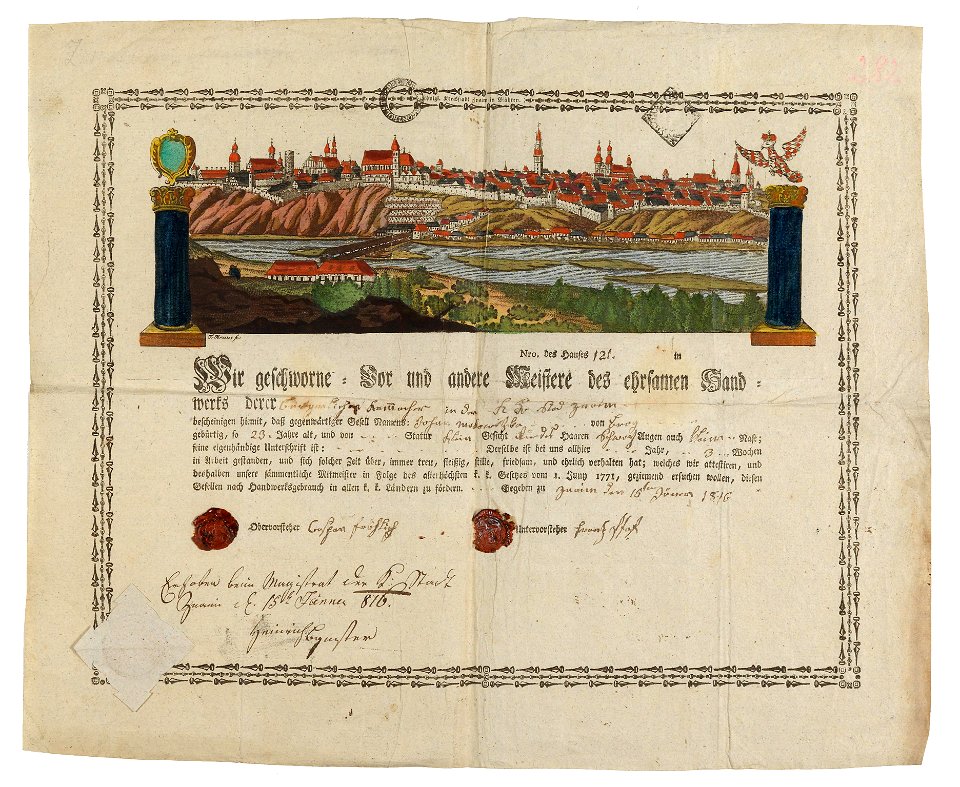 282
Königl. Kreisstadt Znaim in Mähren.
Nro. des Hauses 121. in
Wir geschworne-Vor und andere Meistere des ehrsamen Hand-
werks derer in der Stad Znaim
bescheinigen hiemit, daß gegenwärtiger Gesell Namens: Johan von Prag
gebürtig, so 23. Jahre alt, und von Statur Gesicht Haaren Schwarz Augen auch Nase;
seine eigenhändige Unterschrift ist: Derselbe ist bei uns allhier Jahr, 3 Wochen
in Arbeit gestanden, und sich solcher Zeit über, immer treu, fleißig, stille, friedsam, und ehrlich verhalten hat; welches wir attestiren, und
deßhalben unsere sämmentliche Mitmeister in Folge des allerhöchsten k. k. Gesetzes vom 1. Juny 1771, geziemend ersuchen wollen, diesen
Gesellen nach Handwerksgebrauch in allen k. k. Ländern zu fördern. Gegeben zu Znaim den 15te Jäner 1816
Obervorsteher Caspar Fröhlich
Untervorsteher Franz
Erhoben beim Magistrat der K. Stadt
Znaim d. 15th Jänner 816.
Heinrich